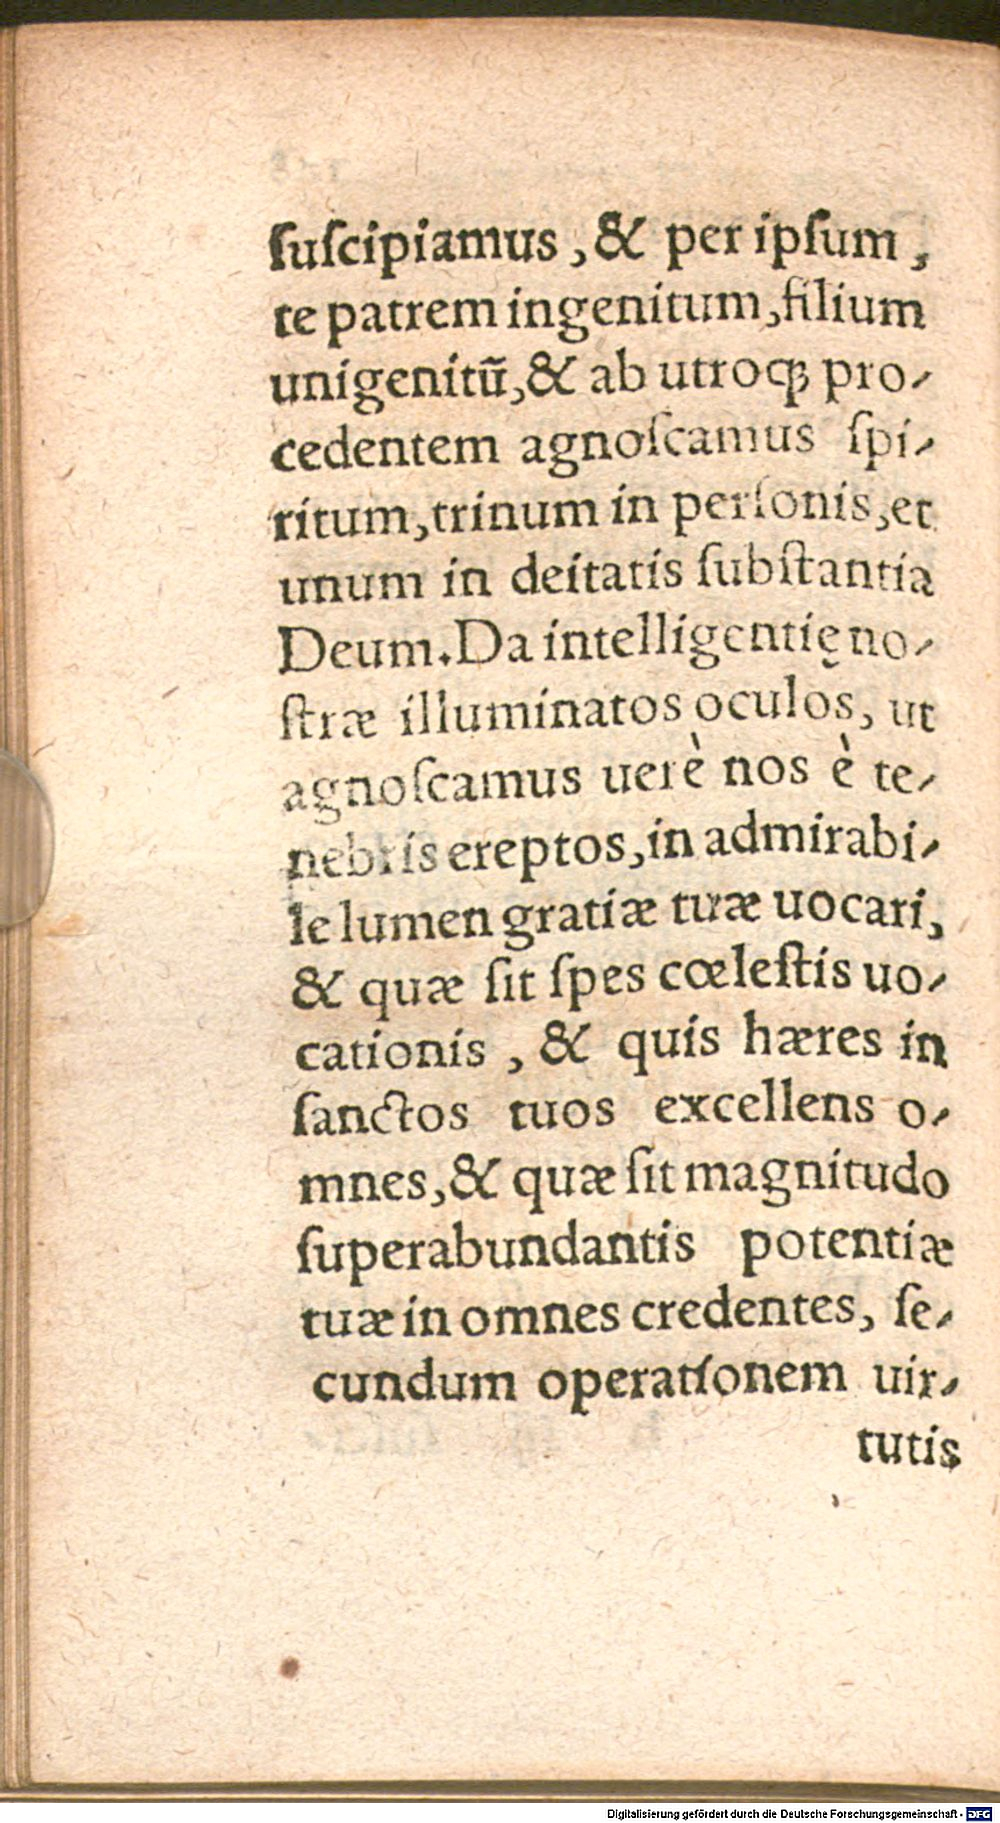 ſuſcipiamus, & per ipſum,
te patrem ingenitum, filium
unigenitũ, & ab utroqꝫ pro-
cedentem agnoſcamus ſpi-
ritum, trinum in perſonis, et
unum in deitatis ſubſtantia
Deum. Da intelligentię no-
ſtræ illuminatos oculos, ut
agnoſcamus uerè nos è te-
nebris ereptos, in admirabi-
le lumen gratiæ tuæ uocari,
& quæ ſit ſpes cœleſtis uo-
cationis, & quis hæres in
ſanctos tuos excellens o-
mnes, & quæ ſit magnitudo
ſuperabundantis potentiæ
tuæ in omnes credentes, ſe-
cundum operationem uir-
tutis
Digitalisierung gefördert durch die Deutsche Forschungsgemeinschaft - DFG